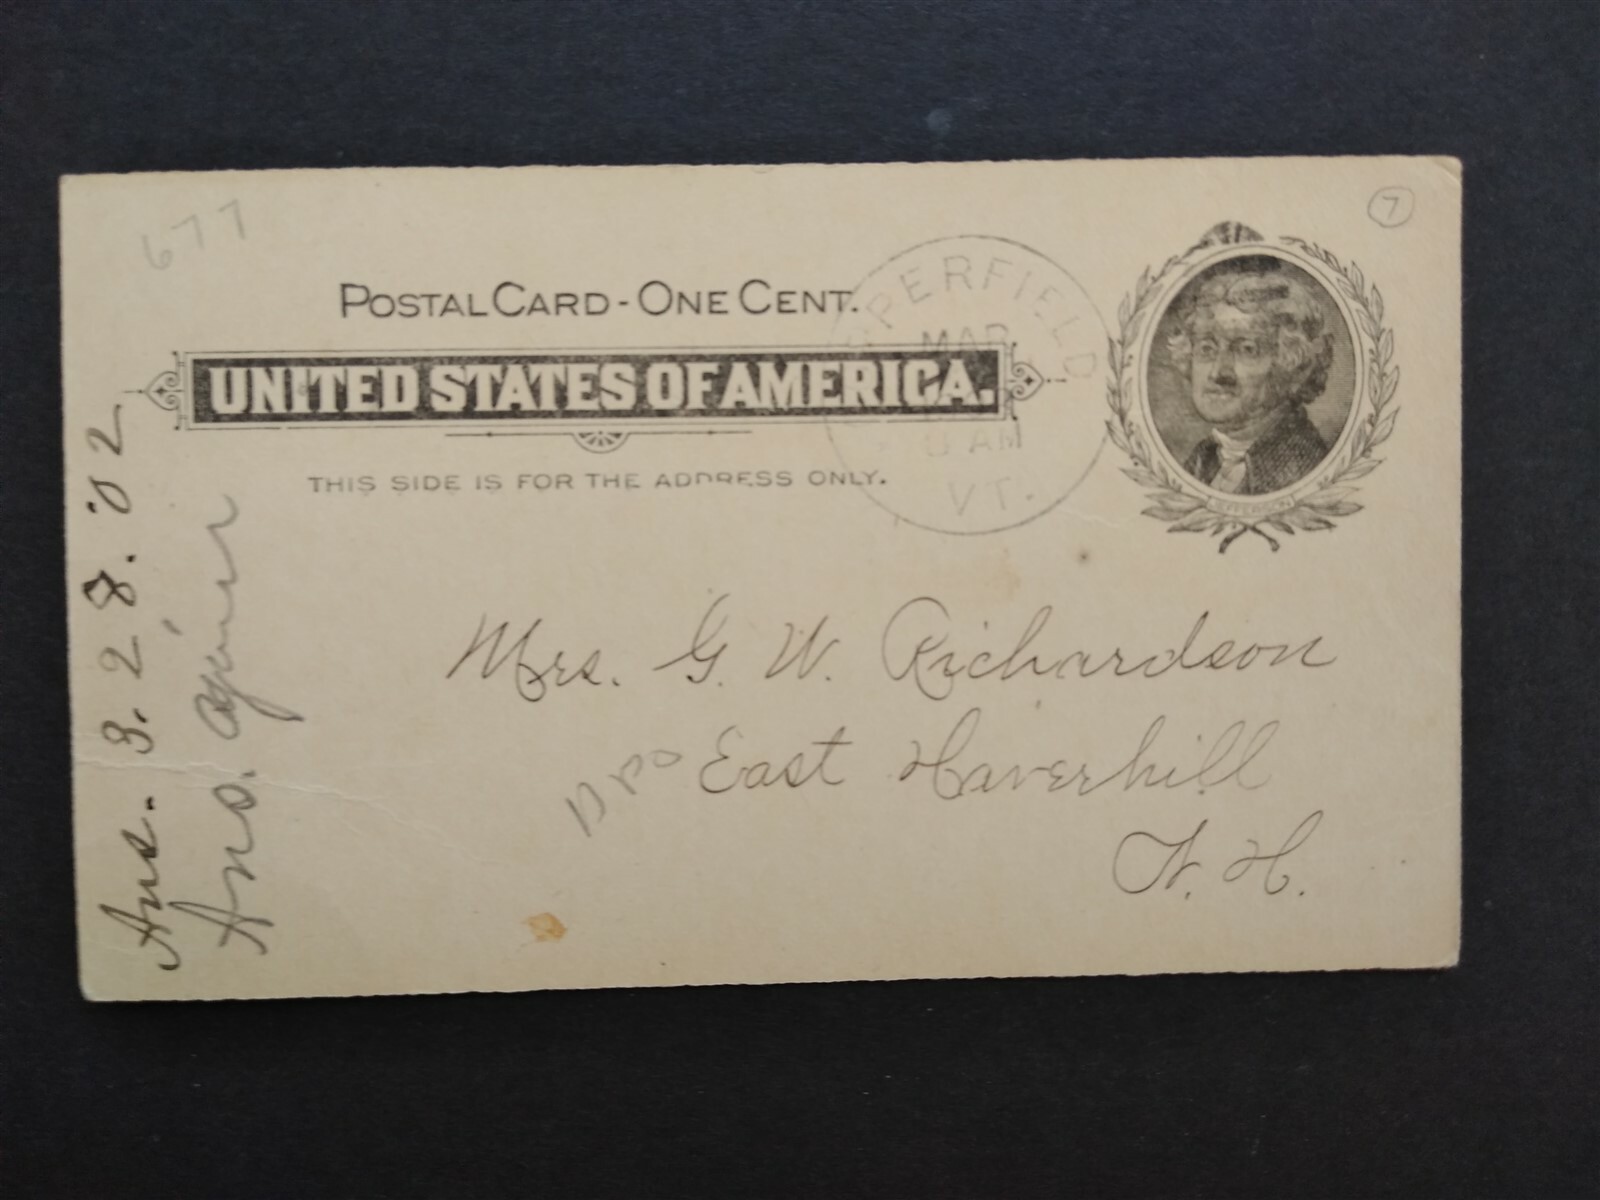 677
7
POSTAL CARD - ONE CENT.
UNITED STATES OF AMERICA.
THIS SIDE IS FOR THE ADDRESS ONLY.
PERFIELD
MAR
AM
VT.
JEFFERSON
Mrs. G. W. Richardson
DPO
East Haverhill
N. H.
Ans. 3. 28. '02
Ans. again